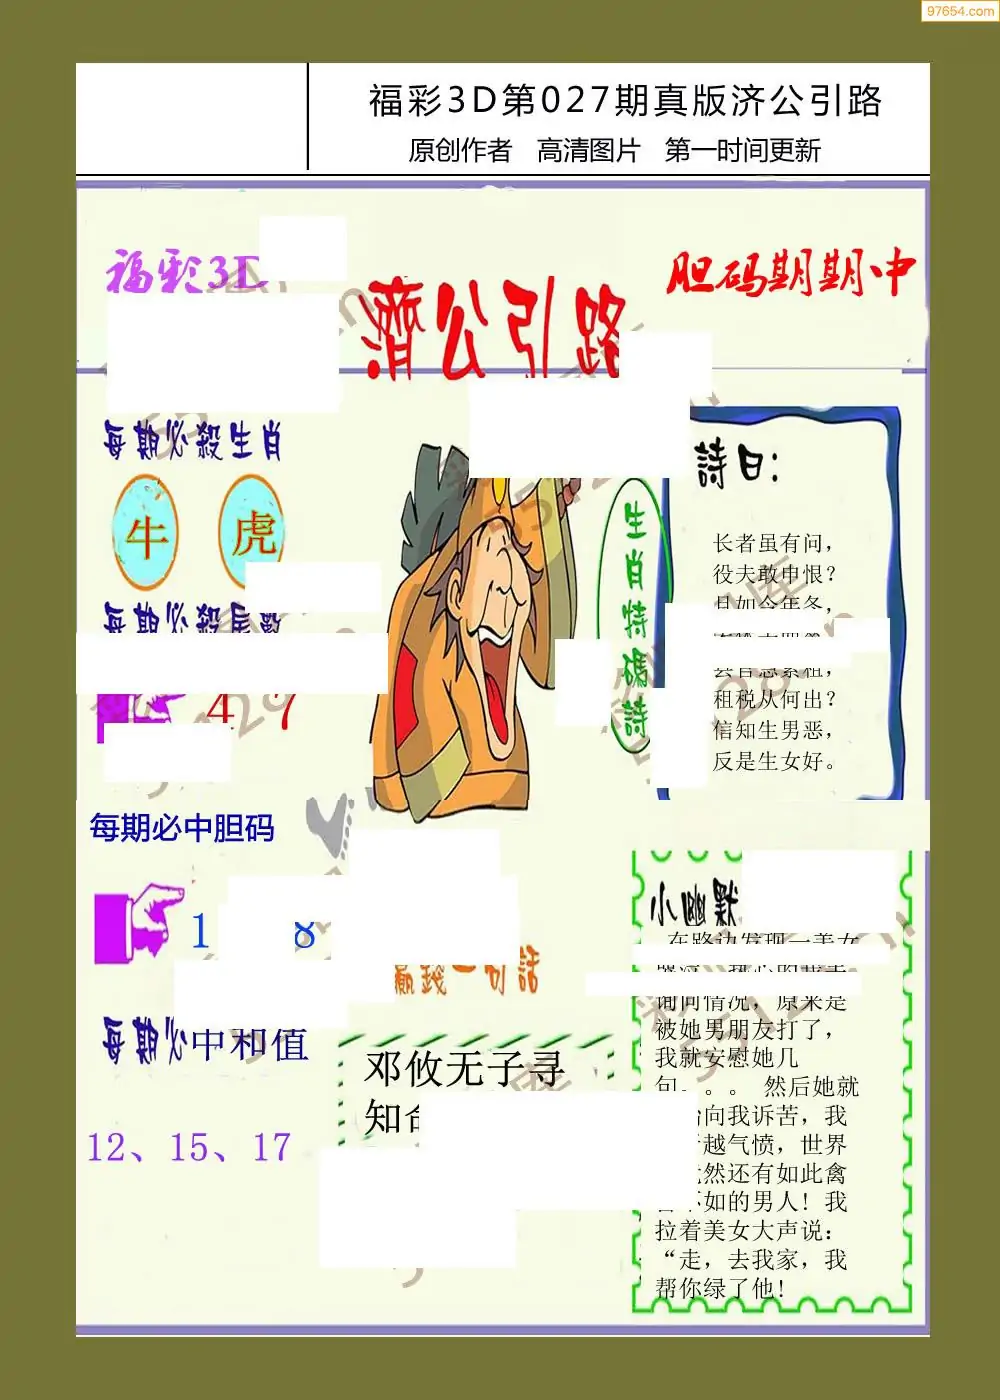 97654.com
福彩3D第027期真版济公引路
原创作者 高清图片 第一时间更新
福彩3D
濟公引路
胆码期期中
每期必殺生肖
牛 虎
每期必殺尾數
4 7
每期必中胆码
1 8
每期必中和值
12、15、17
生肖特碼詩
詩曰:
长者虽有问，
役夫敢申恨？
且如今年冬，
县官急索租，
租税从何出？
信知生男恶，
反是生女好。
赢錢一句話
邓攸无子寻
知
小幽默
在路边发现一美女
询问情况，原来是
被她男朋友打了，
我就安慰她几
句。。。 然后她就
向我诉苦，我
越气愤，世界
然还有如此禽
不如的男人! 我
拉着美女大声说：
“走，去我家，我
帮你绿了他!